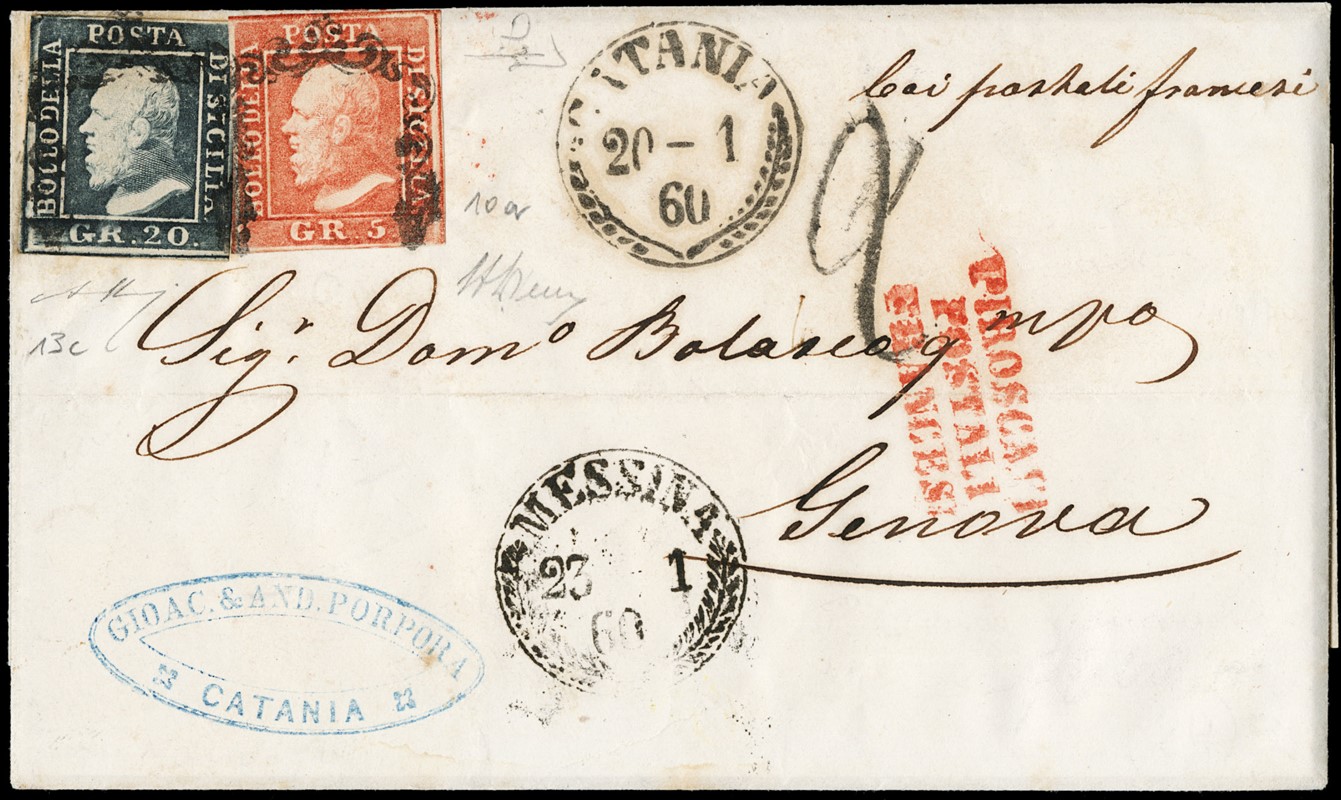 POSTA
BOLLO DELLA
DI SICILIA
GR. 20.
POSTA
BOLLO DELLA
DI SICILIA
GR. 5
CATANIA
20 - 1
60
Coi postali francesi
10 or
13c
Sigr. Domo Bolasco qm
Genova
PIROSCAFI
POSTALI
FRANCESI
MESSINA
23 1
60
GIOAC. & AND. PORPORA
CATANIA